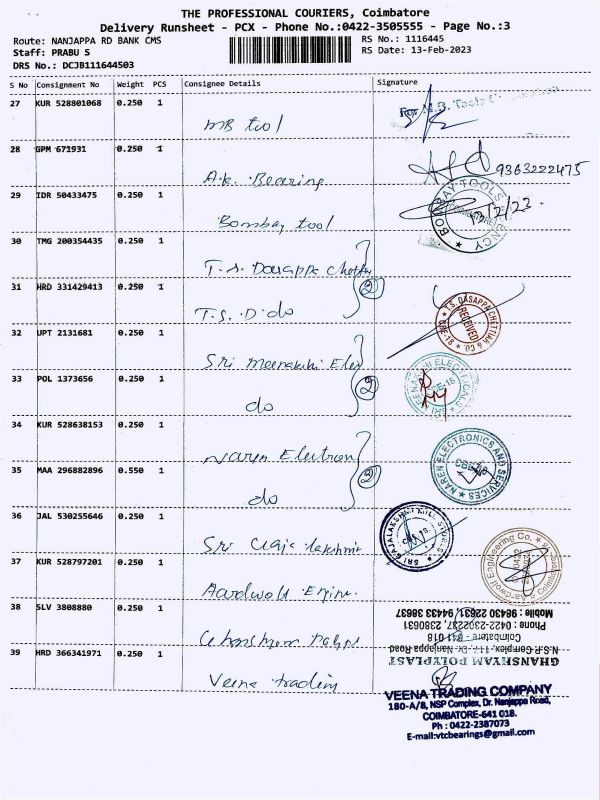 THE PROFESSIONAL COURIERS, Coimbatore
Delivery Runsheet - PCX - Phone No.:0422-3505555 - Page No.:3
Route: NANJAPPA RD BANK CMS
RS No.: 1116445
Staff: PRABU S
RS Date: 13-Feb-2023
DRS No.: DCJB111644503
S No Consignment No Weight PCS Consignee Details Signature
27 KUR 528801068 0.250 1
MB tool
28 GPM 671931 0.250 1
9363222475
A.K. Bearing
29 IDR 50433475 0.250 1
Bombay tool
BOMBAY TOOLS AGENCY
30 TMG 200354435 0.250 1
T.S. Dasappa Chettiar
31 HRD 331429413 0.250 1
2
T.S. D do
T.S. DASAPPA CHETTIAR & CO.
RECEIVED
32 UPT 2131681 0.250 1
Sri Meenakshi Elec
33 POL 1373656 0.250 1
2
do
34 KUR 528638153 0.250 1
Naren Electron
NAREN ELECTRONICS AND SERVICES
35 MAA 296882896 0.550 1
2
do
36 JAL 530255646 0.250 1
Sri Raja lakshmi
37 KUR 528797201 0.250 1
Aardwolf Engine.
Aardwolf Engineering Co.
38 SLV 3808880 0.250 1
Mobile : 98430 22631, 94433 38637
Phone : 0422-2302237, 2380631
Coimbatore - 641 018
N.S.R. Complex, Dr. Nanjappa Road
GHANSHYAM POLYPLAST
39 HRD 366341971 0.250 1
Veena trading
VEENA TRADING COMPANY
180-A/8, NSP Complex, Dr. Nanjappa Road,
COIMBATORE-641 018.
Ph : 0422-2387073
E-mail:vtcbearings@gmail.com